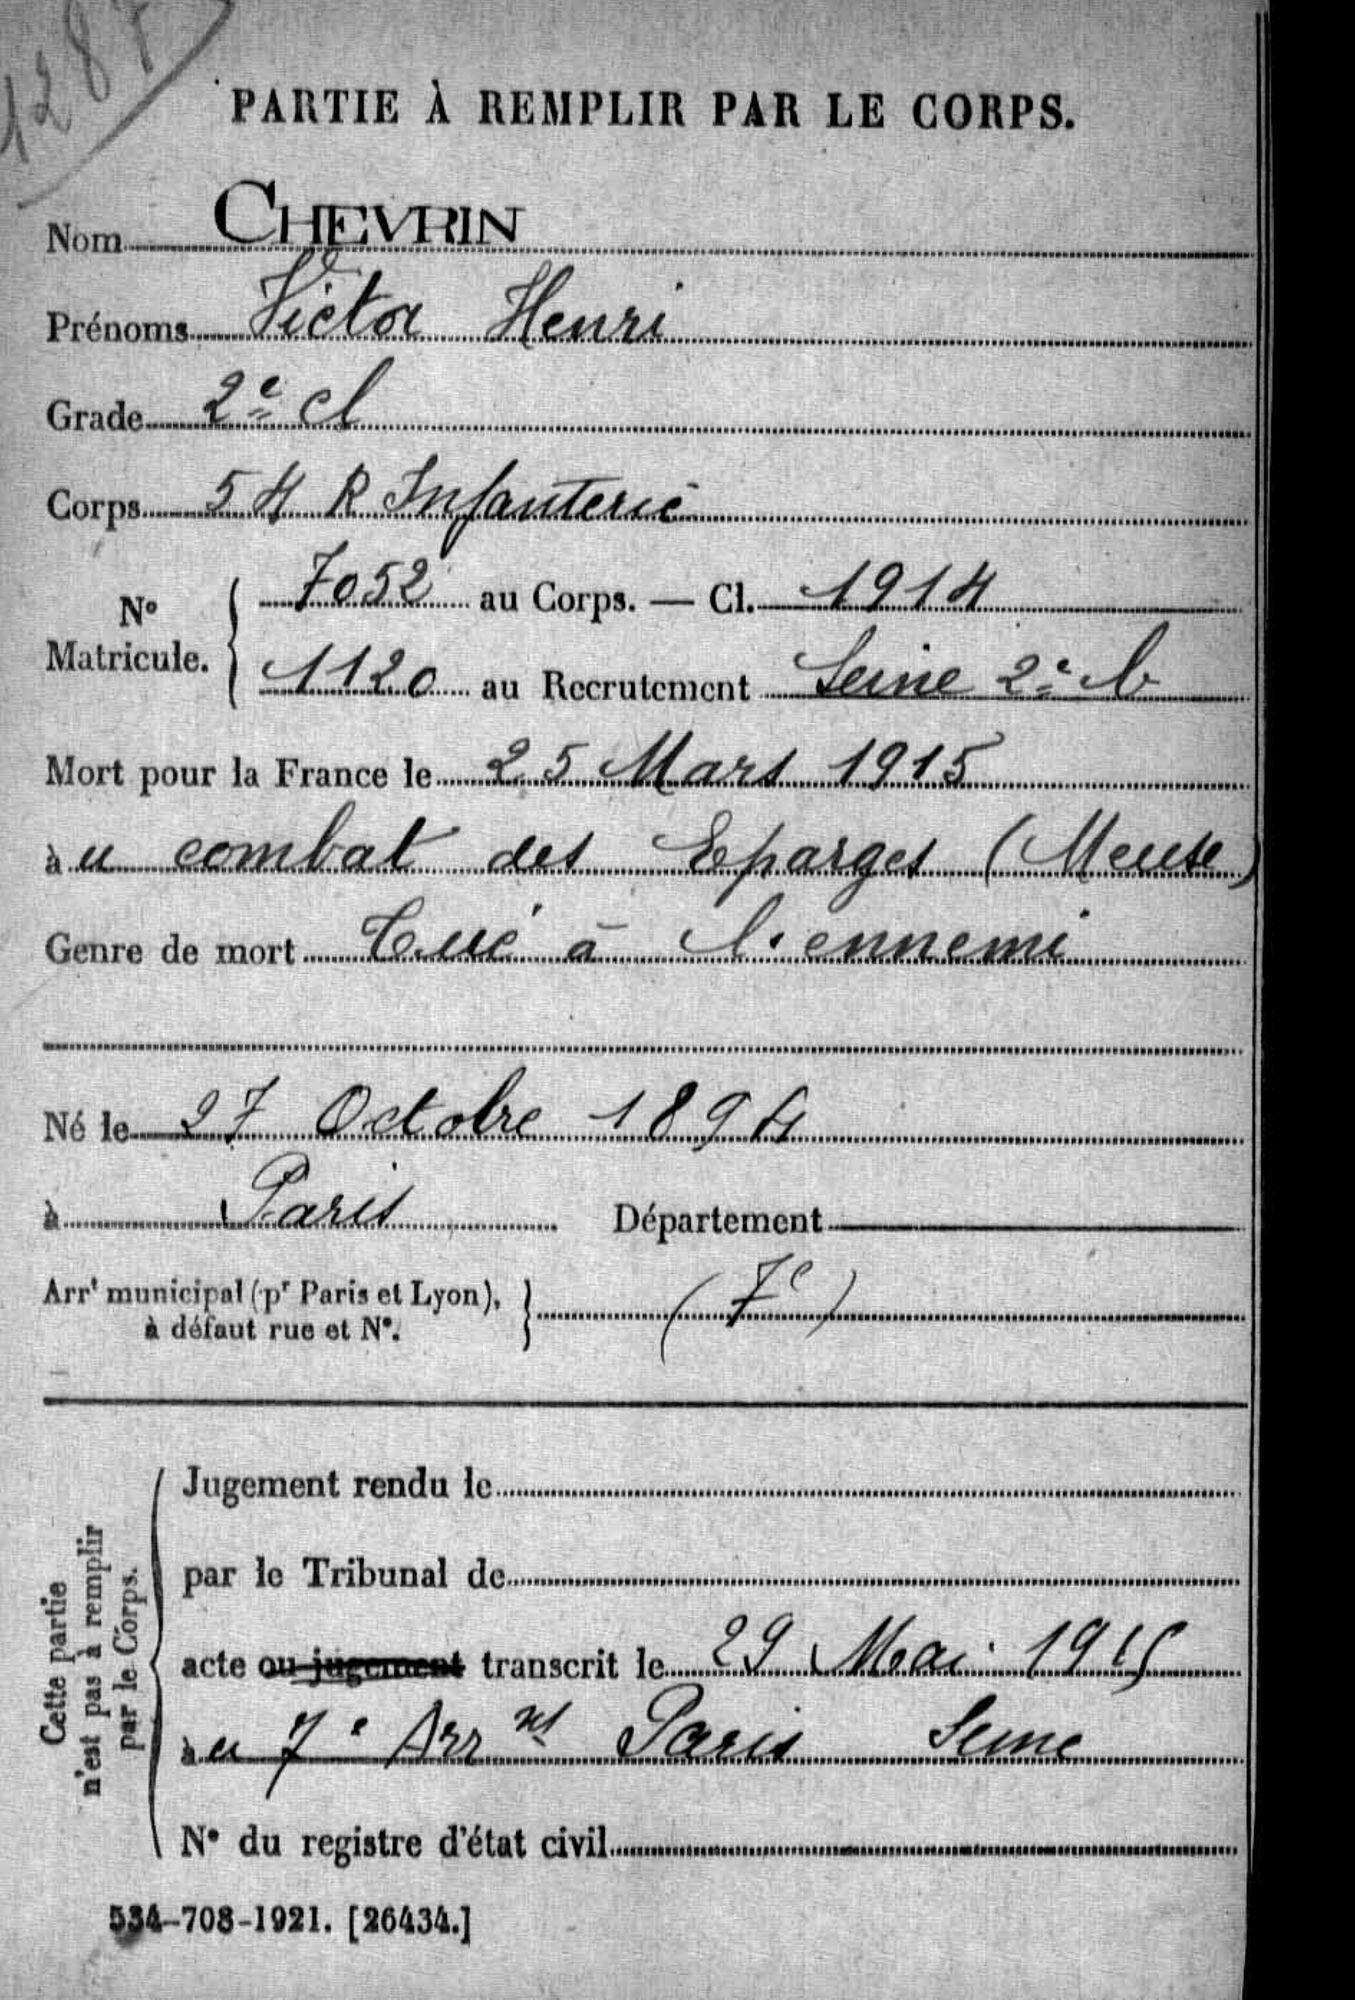 1287
PARTIE À REMPLIR PAR LE CORPS.
Nom CHEVRIN
Prénoms Victor Henri
Grade 2e cl
Corps 54 R Infanterie
N° Matricule. { 7052 au Corps. — Cl. 1914
1120 au Recrutement Seine 2e b
Mort pour la France le 25 Mars 1915
àu combat des Eparges (Meuse)
Genre de mort Tué à l'ennemi
Né le 27 Octobre 1894
à Paris Département
Arrt municipal (pr Paris et Lyon), à défaut rue et N°. } (7e)
Cette partie n'est pas à remplir par le Corps.
Jugement rendu le
par le Tribunal de
acte ou jugement transcrit le 29 Mai 1915
àu 7e Arrnt Paris Seine
N° du registre d'état civil
534-708-1921. [26434.]